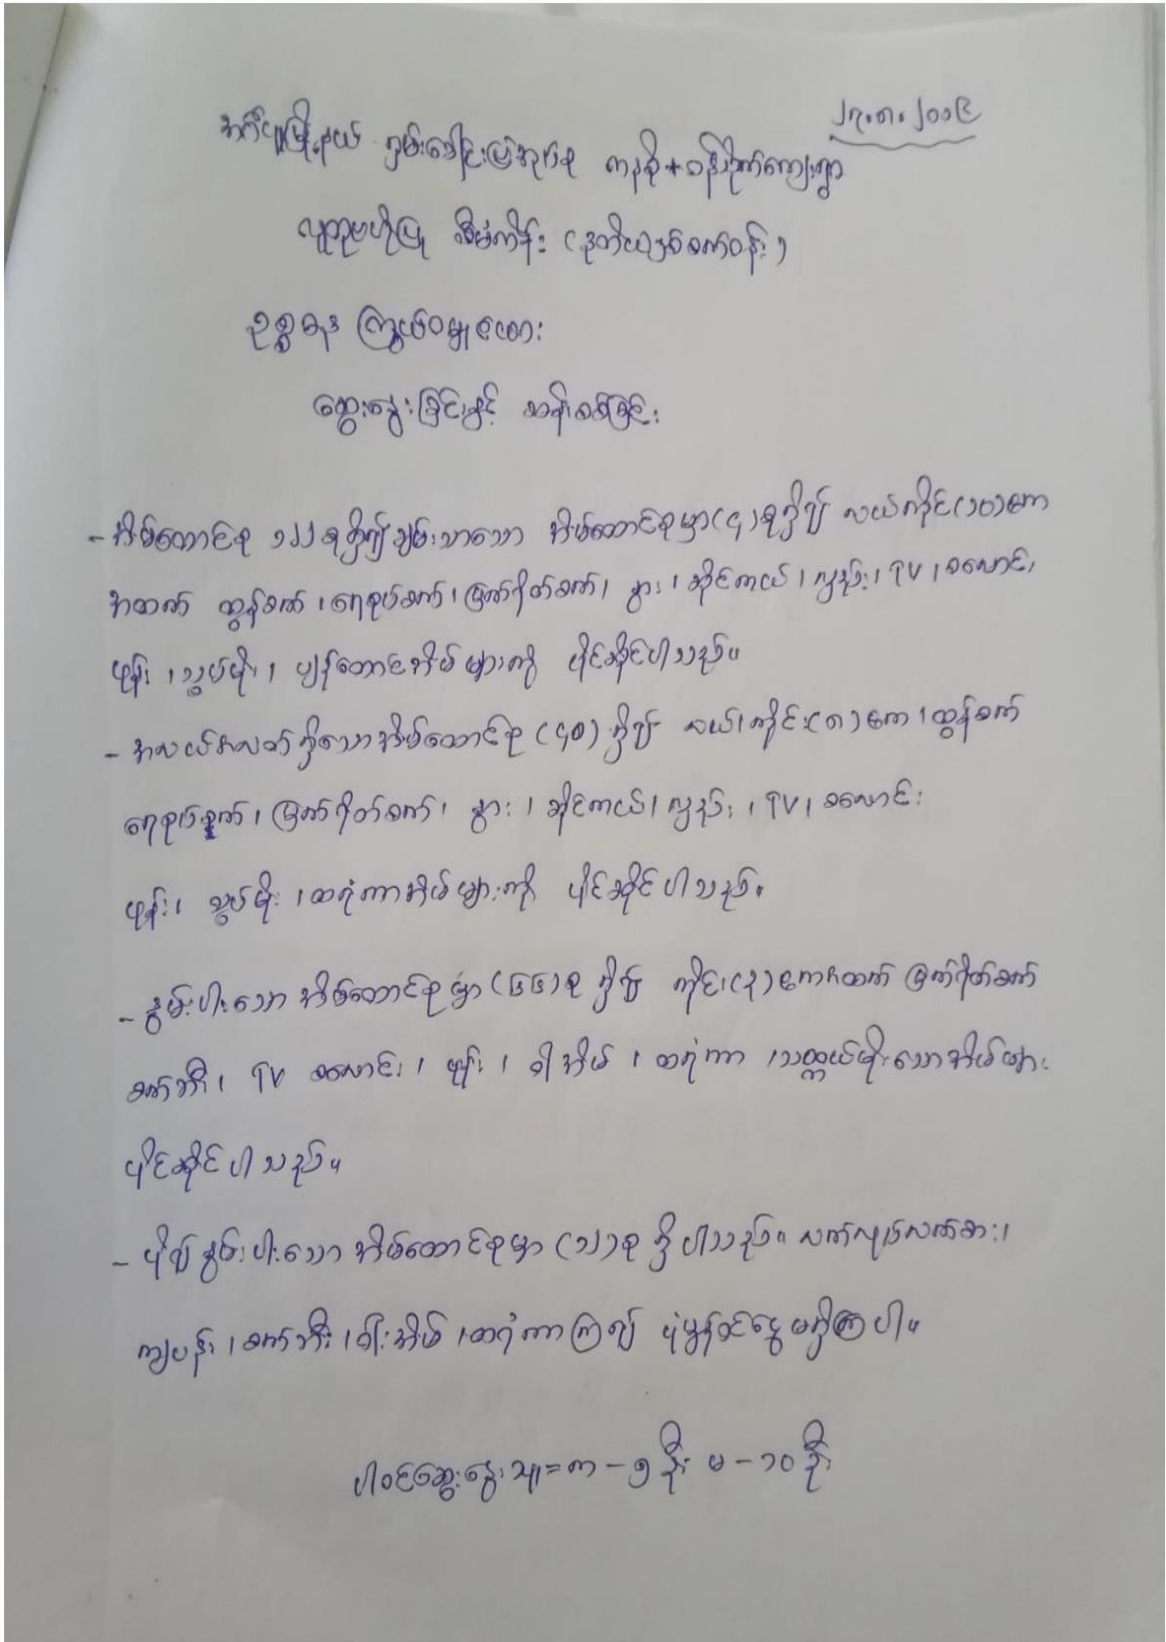 ၂၇.၈.၂၀၁၉
အင်္ဂပူမြို့နယ် ရှမ်းခေါင်းမြအုပ်စု ကနစို+ဝန်သိုက်ကျေးရွာ
လူထုဗဟိုပြု စီမံကိန်း (ဒုတိယနှစ်စက်ဝန်း)
ဥစ္စာဓန ကြွယ်ဝမှုလေ့လာ
ဆွေးနွေးခြင်းနှင့် ဆန်းစစ်ခြင်း
- အိမ်ထောင်စု ၁၂၂ ခုရှိ၍ ချမ်းသာသော အိမ်ထောင်စုမှာ (၄)စုရှိ၍ လယ်ကိုင်(၁၀)ဧက
အထက် ထွန်စက်၊ ရေစုပ်စက်၊ မြက်ရိတ်စက်၊ နွား၊ ဆိုင်ကယ်၊ လှည်း၊ TV၊ စလောင်း
ဖုန်း ၊ သွပ်မိုး၊ ပျဉ်ထောင်အိမ် များကို ပိုင်ဆိုင်ပါသည်။
- အလယ်အလတ်ရှိသောအိမ်ထောင်စု (၄၀) ရှိ၍ လယ်ကိုင်း(၈)ဧက ၊ ထွန်စက်
ရေစုပ်စက်၊ မြက်ရိတ်စက်၊ နွား ၊ ဆိုင်ကယ်၊ လှည်း ၊ TV၊ စလောင်း
ဖုန်း၊ သွပ်မိုး ၊ ထရံကာအိမ်များကို ပိုင်ဆိုင်ပါသည်။
- နွမ်းပါးသော အိမ်ထောင်စုမှာ (၆၆)စု ရှိ၍ ကိုင်း(၃)ဧကအထက် မြက်ရိတ်စက်
စက်ဘီး၊ TV စလောင်း ၊ ဖုန်း ၊ ဝါးအိမ် ၊ ထရံကာ ၊ သက္ကယ်မိုးသောအိမ်များ
ပိုင်ဆိုင်ပါသည်။
- ပို၍ နွမ်းပါးသော အိမ်ထောင်စုမှာ (၁၂)စု ရှိပါသည်။ လက်လုပ်လက်စား၊
ကျပန်း ၊ စက်ဘီး ၊ ဝါးအိမ် ၊ ထရံကာကြ၍ ပုံမှန်ဝင်ငွေ မရှိကြပါ။
ပါဝင်ဆွေးနွေးသူ = ကျ - ၅ ဦး မ - ၁၀ ဦး